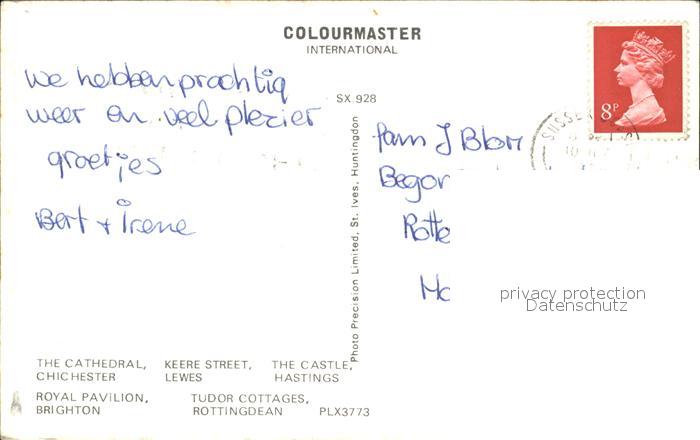 COLOURMASTER
INTERNATIONAL
We hebben prachtig
weer en veel plezier
groetjes
Bert + Irene
SX.928
Photo Precision Limited, St. Ives, Huntingdon
8P
SUSSEX
fam J Blom
Begon
Rotte
privacy protection
Datenschutz
THE CATHEDRAL, KEERE STREET, THE CASTLE,
CHICHESTER LEWES HASTINGS
ROYAL PAVILION, TUDOR COTTAGES,
BRIGHTON ROTTINGDEAN PLX3773